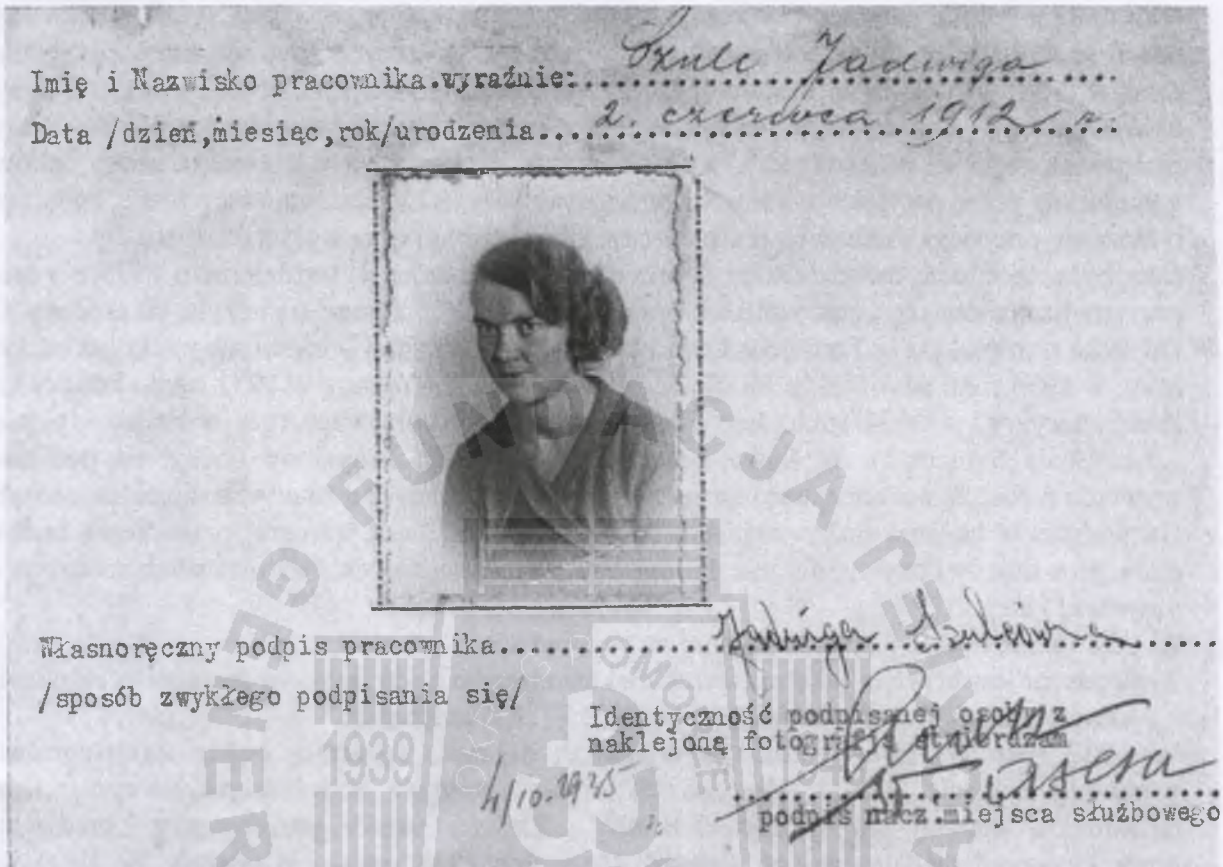 Imię i Nazwisko pracownika.wyraźnie:.......Szulc Jadwiga.......
Data /dzień,miesiąc,rok/urodzenia....2. czerwca 1912 r.
FUNDACJA GENERAŁ
Własnoręczny podpis pracownika.....Jadwiga Szulcówna.....
/sposób zwykłego podpisania się/
Identyczność podpisanej osoby z
naklejoną fotografją stwierdzam
1939
4/10.1935
podpis nacz.miejsca służbowego